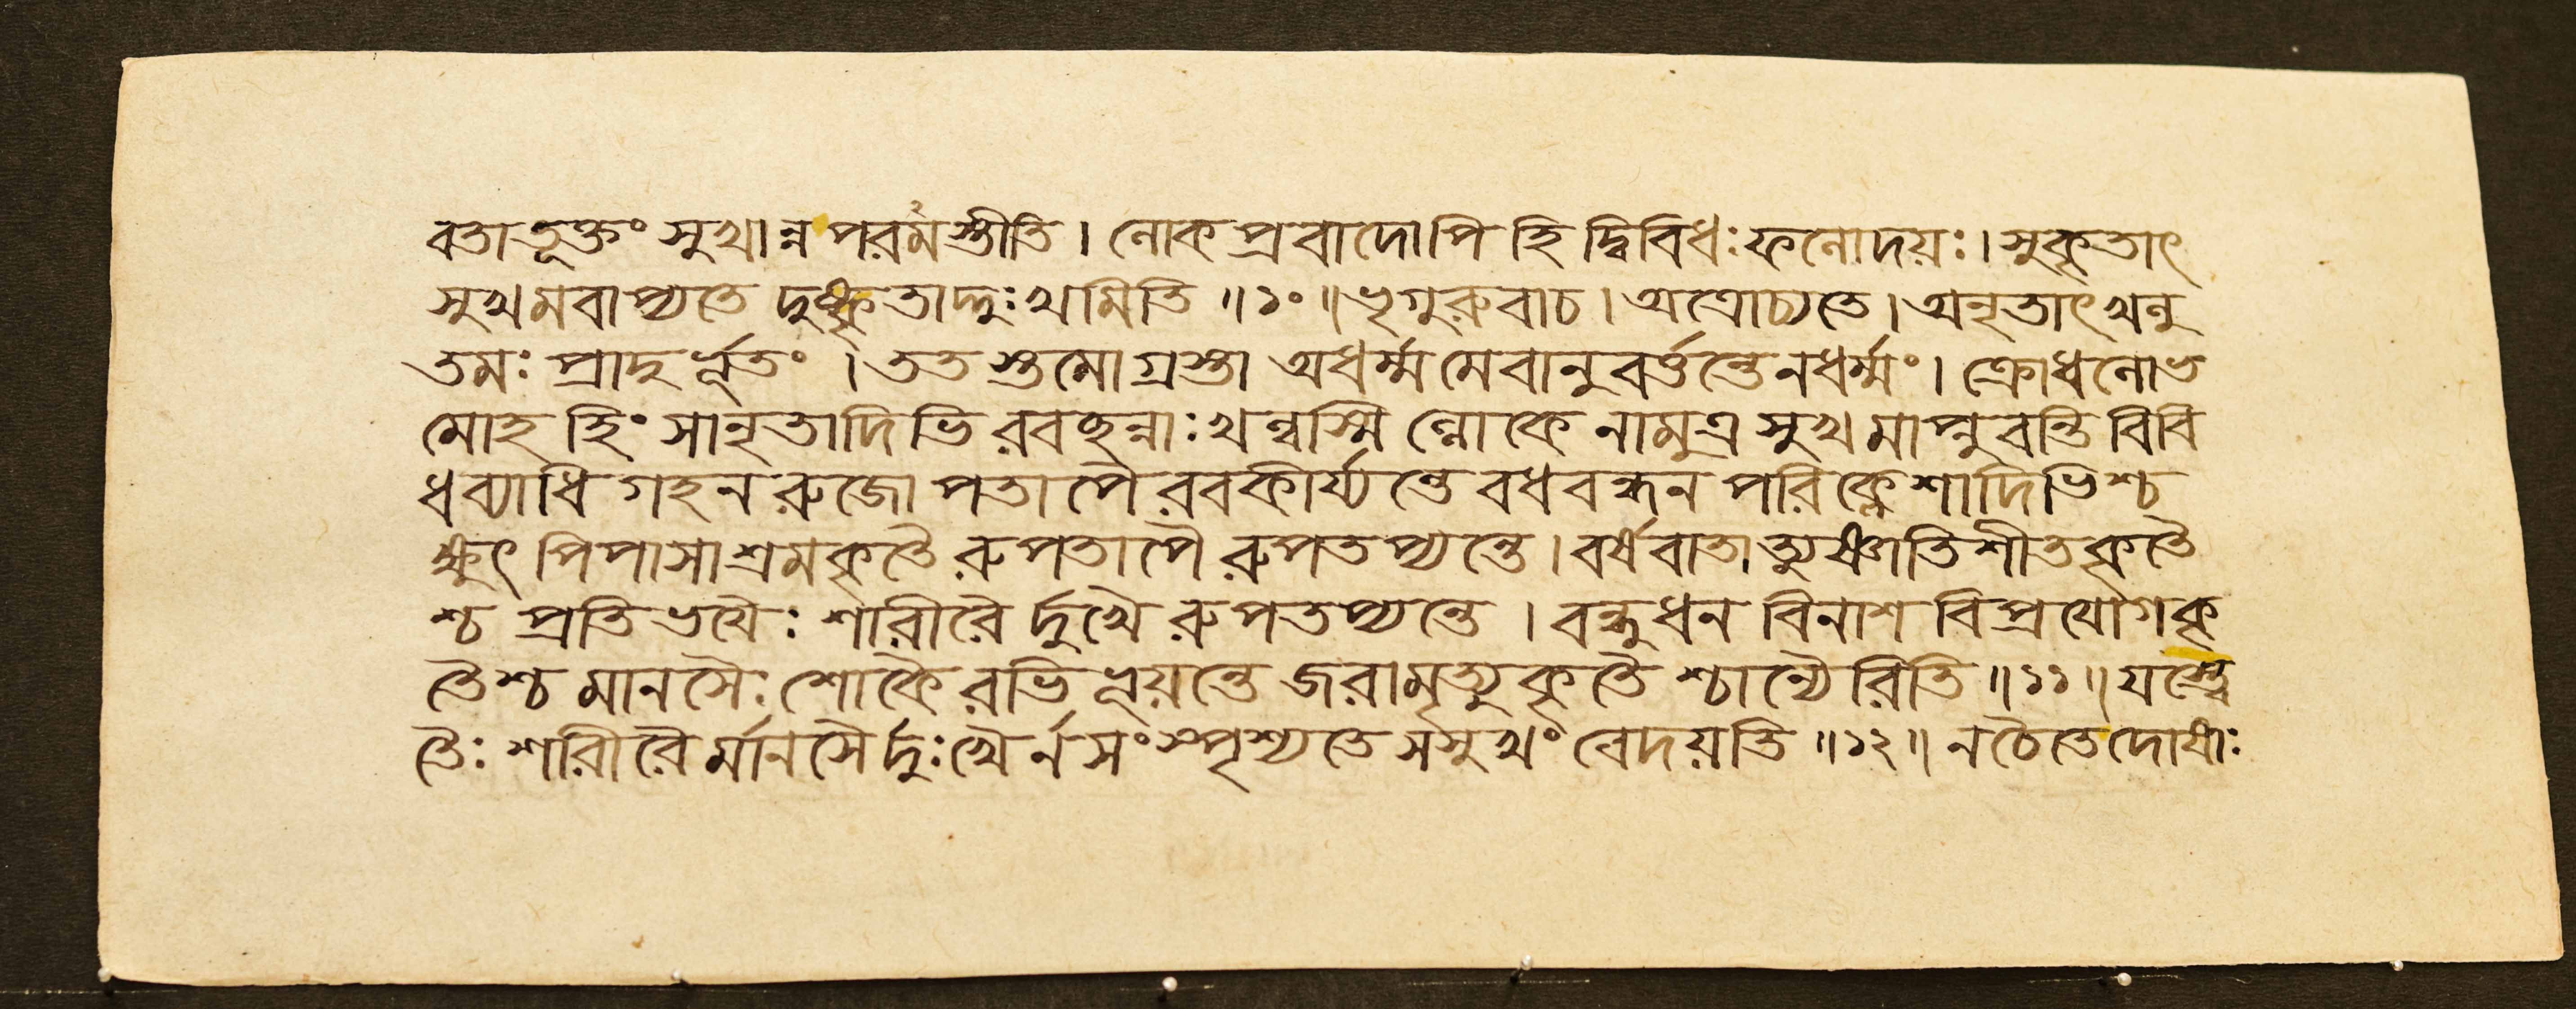 বতাতূক্তং সুখান্ন পরমমস্তীতি । লোকপ্রবাদোপি হি দ্বিবিধঃ ফলোদয়ঃ । সুকৃতাৎ
সুখমবাপ্যতে দুষ্কৃতাদ্দুঃখমিতি ॥ ১০ ॥ ভৃগুরুবাচ । অত্রোচ্যতে । অনৃতাৎ খলু
তমঃ প্রাদুর্ভূতং । ততস্তমোগ্রস্তা অধর্ম্মমেবানুবর্ত্তন্তে ন ধর্ম্মং । ক্রোধলোভ
মোহহিংসানৃতাদিভিরবচ্ছন্নাঃ খল্বস্মিল্লোকে নামুত্র সুখমাপ্নুবন্তি বিবি
ধব্যাধিগহনরুজোপতাপৈরবকীর্য্যন্তে বধবন্ধনপরিক্লেশাদিভিশ্চ
ক্ষুৎপিপাসাশ্রমকৃতৈরুপতাপৈরুপতপ্যন্তে । বর্ষবাতাত্যুষ্ণাতিশীতকৃতৈ
শ্চ প্রতিভয়ৈঃ শারীরৈর্দুখৈরুপতপ্যন্তে । বন্ধুধনবিনাশবিপ্রযোগকৃ
তৈশ্চ মানসৈঃ শোকৈরভিভূয়ন্তে জরামৃত্যুকৃতৈশ্চান্যৈরিতি ॥ ১১ ॥ যস্ত্বে
তৈঃ শারীরৈর্মানসৈর্দুঃখৈর্ন সংস্পৃশ্যতে স সুখং বেদয়তি ॥ ১২ ॥ ন চৈতে দোষাঃ